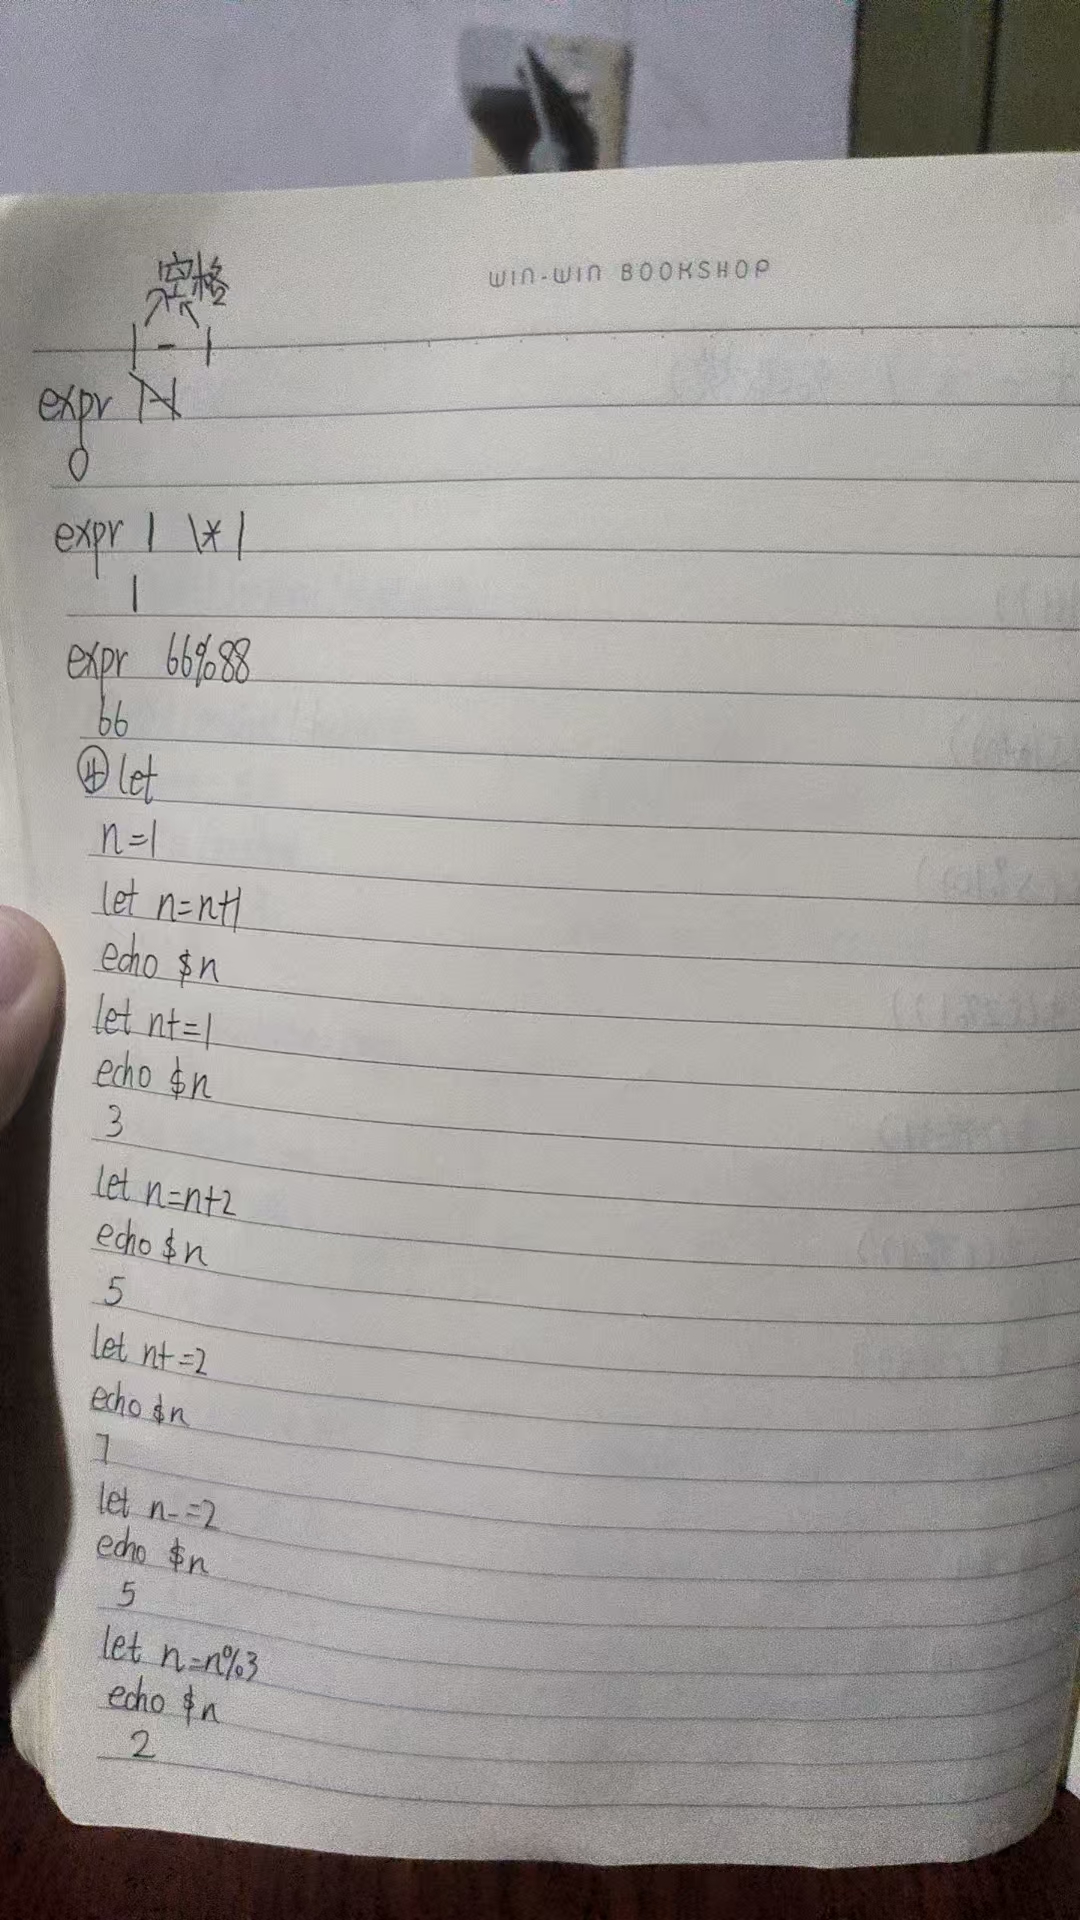 WIN-WIN BOOKSHOP
空格
1 - 1
expr
0
expr 1 \* 1
1
expr 66%88
66
④ let
n=1
let n=n+1
echo $n
let n+=1
echo $n
3
let n=n+2
echo $n
5
let n+=2
echo $n
7
let n-=2
echo $n
5
let n=n%3
echo $n
2